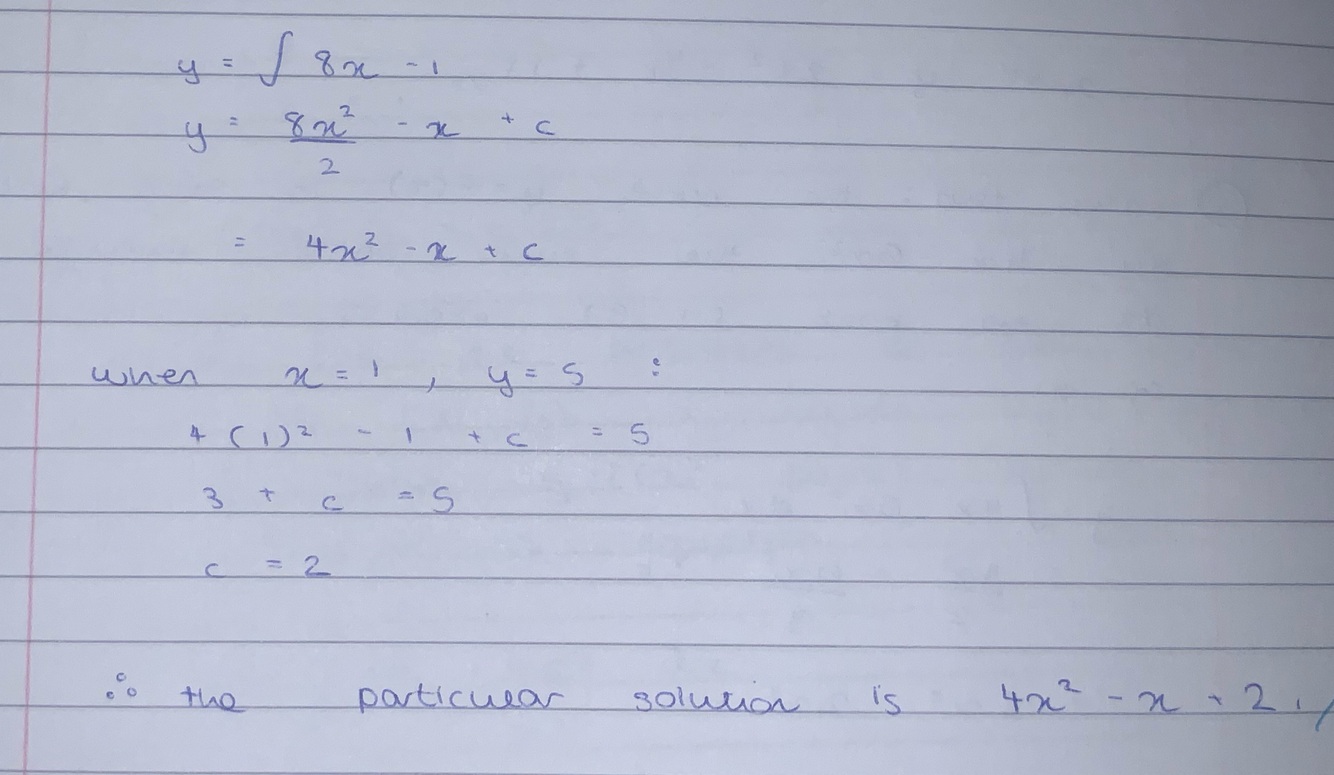 y = ∫ 8x - 1
y = 8x²/2 - x + c
= 4x² - x + c
when x = 1 , y = 5 :
4 (1)² - 1 + c = 5
3 + c = 5
c = 2
∴ the particular solution is 4x² - x + 2 .